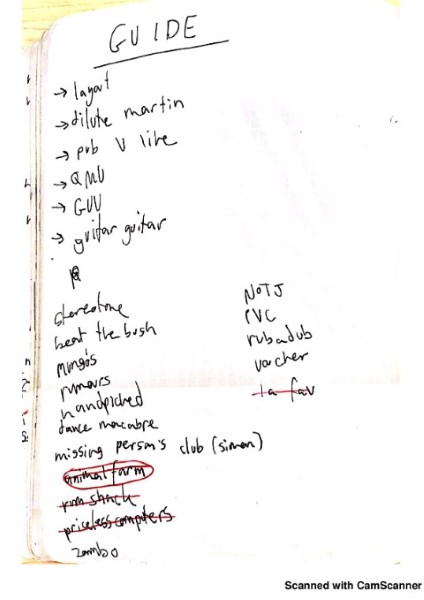 GUIDE
→ layout
→ dilute martin
→ pub v like
→ QMU
→ GUU
→ guitar guitar
stereotone
beat the bush
mingos
rumours
handpicked
dance macabre
missing person's club (simon)
animal farm
rum shack
priceless computers
zombo
NOTJ
PVC
rubadub
voucher
la fav
Scanned with CamScanner